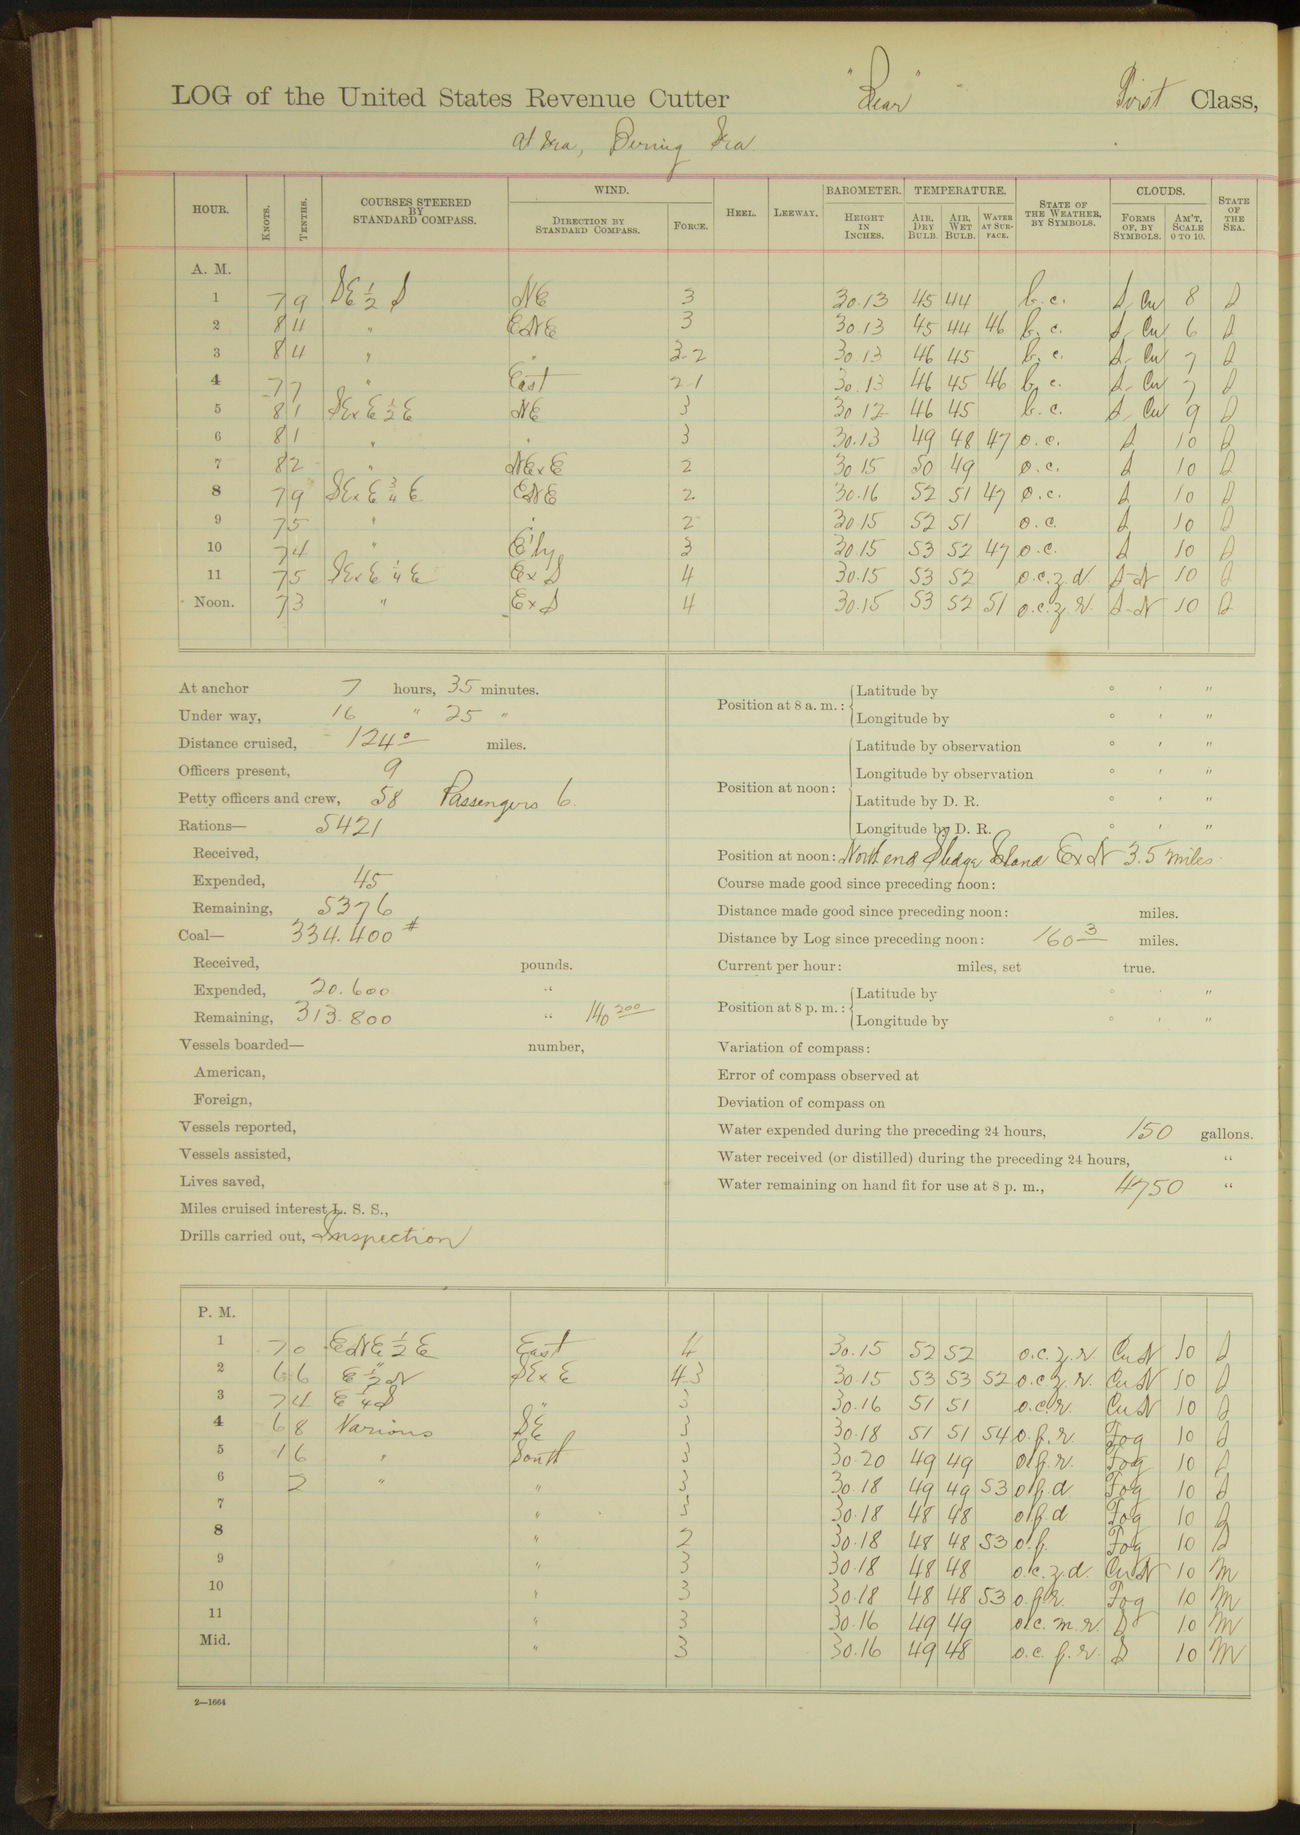 LOG of the United States Revenue Cutter "Bear" First Class,
At Sea, Bering Sea
HOUR. KNOTS. TENTHS. COURSES STEERED BY STANDARD COMPASS. WIND. DIRECTION BY STANDARD COMPASS. FORCE. HEEL. LEEWAY. BAROMETER. HEIGHT IN INCHES. TEMPERATURE. AIR, DRY BULB. AIR, WET BULB. WATER AT SURFACE. STATE OF THE WEATHER, BY SYMBOLS. CLOUDS. FORMS OF, BY SYMBOLS. AM'T, SCALE 0 TO 10. STATE OF THE SEA.
A. M.
1 7 9 SE 1/2 S NE 3 30.13 45 44 b.c. S, Cu 8 S
2 8 4 " ENE 3 30.13 45 44 46 b.c. S, Cu 6 S
3 8 4 " " 3-2 30.13 46 45 b.c. S, Cu 7 S
4 7 7 " East 2-1 30.13 46 45 46 b.c. S, Cu 7 S
5 8 1 SExE 1/2 E NE 3 30 12 46 45 b.c. S, Cu 9 S
6 8 1 " " 3 30.13 49 48 47 o.c. S 10 S
7 8 2 " NExE 2 30 15 50 49 o.c. S 10 S
8 7 9 SExE 3/4 E ENE 2 30.16 52 51 47 o.c. S 10 S
9 7 5 " " 2 30 15 52 51 o.c. S 10 S
10 7 4 " E'ly 3 30.15 53 52 47 o.c. S 10 S
11 7 5 SExE 1/4 E ExS 4 30.15 53 52 o.c.z.d. S-N 10 S
Noon. 7 3 " ExS 4 30.15 53 52 51 o.c.z.r. S-N 10 S
At anchor 7 hours, 35 minutes.
Under way, 16 " 25 "
Distance cruised, 124.0 miles.
Officers present, 9
Petty officers and crew, 58 Passengers 6.
Rations— 5421
Received,
Expended, 45
Remaining, 5376
Coal— 334.400 #
Received, pounds.
Expended, 20.600 "
Remaining, 313.800 " 140 300
Vessels boarded— number,
American,
Foreign,
Vessels reported,
Vessels assisted,
Lives saved,
Miles cruised interest L. S. S.,
Drills carried out, Inspection
Position at 8 a. m.: Latitude by ° ' "
Longitude by ° ' "
Position at noon: Latitude by observation ° ' "
Longitude by observation ° ' "
Latitude by D. R. ° ' "
Longitude by D. R. ° ' "
Position at noon: North end Sledge Island ExN 3.5 miles.
Course made good since preceding noon:
Distance made good since preceding noon: miles.
Distance by Log since preceding noon: 160 3 miles.
Current per hour: miles, set true.
Position at 8 p. m.: Latitude by ° ' "
Longitude by ° ' "
Variation of compass:
Error of compass observed at
Deviation of compass on
Water expended during the preceding 24 hours, 150 gallons.
Water received (or distilled) during the preceding 24 hours, "
Water remaining on hand fit for use at 8 p. m., 4750 "
P. M.
1 7 0 ENE 1/2 E East 4 30.15 52 52 o.c.z.r. CuN 10 S
2 6 6 E 1/2 N SExE 4.3 30.15 53 53 52 o.c.z.r. CuN 10 S
3 7 4 E 1/4 S " 3 30.16 51 51 o.c.r. CuN 10 S
4 6 8 Various SE 3 30.18 51 51 54 o.f.r. Fog 10 S
5 1 6 " South 3 30.20 49 49 o.f.r. Fog 10 S
6 " " 3 30.18 49 49 53 o.f.d Fog 10 S
7 " 3 30.18 48 48 o.f.d Fog 10 S
8 " 2 30.18 48 48 53 o.f. Fog 10 S
9 " 3 30.18 48 48 o.c.z.d. CuN 10 M
10 " 3 30.18 48 48 53 o.f.r. Fog 10 M
11 " 3 30.16 49 49 o.c.m.r. S 10 M
Mid. " 3 30.16 49 48 o.c.f.r. S 10 M
2—1664